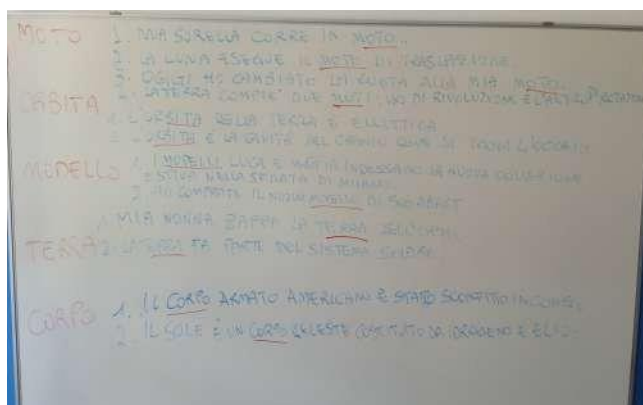 MOTO 1. MIA SORELLA CORRE IN MOTO.
2. LA LUNA ESEGUE IL MOTO DI TRASLAZIONE
3. OGGI HO CAMBIATO LA RUOTA ALLA MIA MOTO.
4. LA TERRA COMPIE DUE MOTI, DI RIVOLUZIONE E
ORBITA 1. L'ORBITA DELLA TERRA È ELLITTICA
2. L'ORBITA È LA CAVITÀ DEL CRANIO DOVE SI TROVA L'OCCHIO
MODELLO 1. I MODELLI LUCA E INDOSSANO LA NUOVA COLLEZIONE
ESTIVA NELLA SFILATA DI MILANO
2. HO COMPRATO IL NUOVO MODELLO DI
1. MIA NONNA ZAPPA LA TERRA DELL'ORTO.
TERRA 2. LA TERRA FA PARTE DEL SISTEMA SOLARE
CORPO 1. IL CORPO ARMATO AMERICANO È STATO SCONFITTO IN
2. IL SOLE È UN CORPO CELESTE COSTITUITO DA IDROGENO E ELIO.